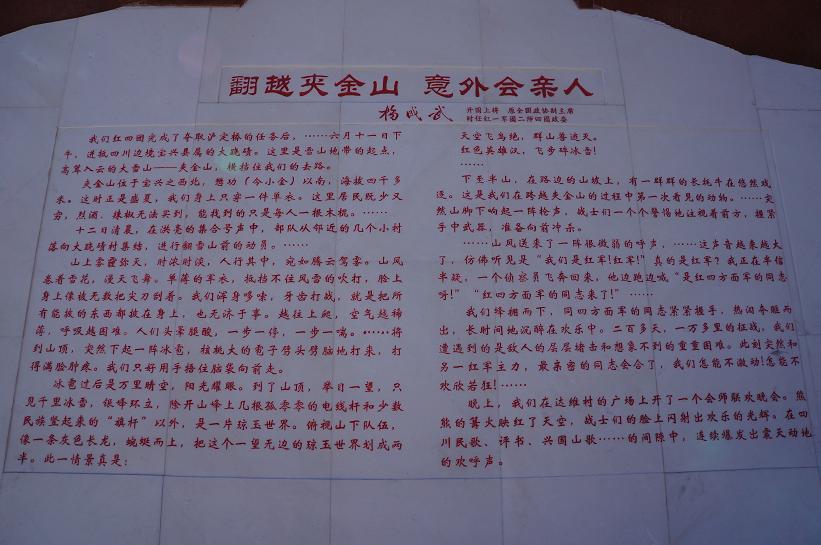 翻越夹金山 意外会亲人
杨成武
开国上将 原全国政协副主席
时任红一军团二师四团政委
我们红四团完成了夺取泸定桥的任务后，……六月十一日下
午，进抵四川边境宝兴县属的大跷碛。这里是雪山地带的起点，
高耸入云的大雪山——夹金山，横挡住我们的去路。
夹金山位于宝兴之西北，懋功（今小金）以南，海拔四千多
米。这时正是盛夏，我们身上只穿一件单衣。这里居民既少又
穷，烈酒、辣椒无法买到，能找到的只是每人一根木棍。……
十二日清晨，在洪亮的集合号声中，部队从邻近的几个小村
落向大跷碛村集结，进行翻雪山前的动员。……
山上雾霞弥天，时浓时淡，人行其中，宛如腾云驾雾。山风
卷着雪花，漫天飞舞。单薄的军衣，抵挡不住风雪的吹打，脸上
身上像被无数把尖刀刮着。我们浑身哆嗦，牙齿打战，就是把所
有能披的东西都披在身上，也无济于事。越往上爬，空气越稀
薄，呼吸越困难。人们头晕腿酸，一步一停，一步一喘。……将
到山顶，突然下起一阵冰雹，核桃大的雹子劈头劈脑地打来，打
得满脸肿疼。我们只好用手捂住脑袋向前走。
冰雹过后是万里晴空，阳光耀眼。到了山顶，举目一望，只
见千里冰雪，银峰环立，除开山峰上几根孤零零的电线杆和少数
民族竖起来的“旗杆”以外，是一片琼玉世界。俯视山下队伍，
像一条灰色长龙，蜿蜒而上，把这个一望无边的琼玉世界划成两
半。此一情景真是：
天空飞鸟绝，群山兽迹灭。
红色英雄汉，飞步碎冰雪！
……
下至半山，在路边的山坡上，有一群群的长牦牛在悠然戏
逐。这是我们在跨越夹金山的过程中第一次看见的动物。……突
然山脚下响起一阵枪声，战士们一个个警惕地注视着前方，握紧
手中武器，准备向前冲杀。
……山风送来了一阵很微弱的呼声，……这声音越来越大
了，仿佛听见是“我们是红军！红军！”真的是红军？我正在半信
半疑，一个侦察员飞奔回来，他边跑边喊“是红四方面军的同志
呀！”“红四方面军的同志来了！”……
我们蜂拥而下，同四方面军的同志紧紧握手，热泪夺眶而
出，长时间地沉醉在欢乐中。二百多天，一万多里的征战，我们
遭遇到的是敌人的层层堵击和想象不到的重重困难。此刻突然和
另一红军主力，最亲密的同志会合了，我们怎能不激动！怎能不
欢欣若狂！……
晚上，我们在达维村的广场上开了一个会师联欢晚会。熊
熊的篝火映红了天空，战士们的脸上闪射出欢乐的光辉。在四
川民歌、评书、兴国山歌……的间隙中，连续爆发出震天动地
的欢呼声。